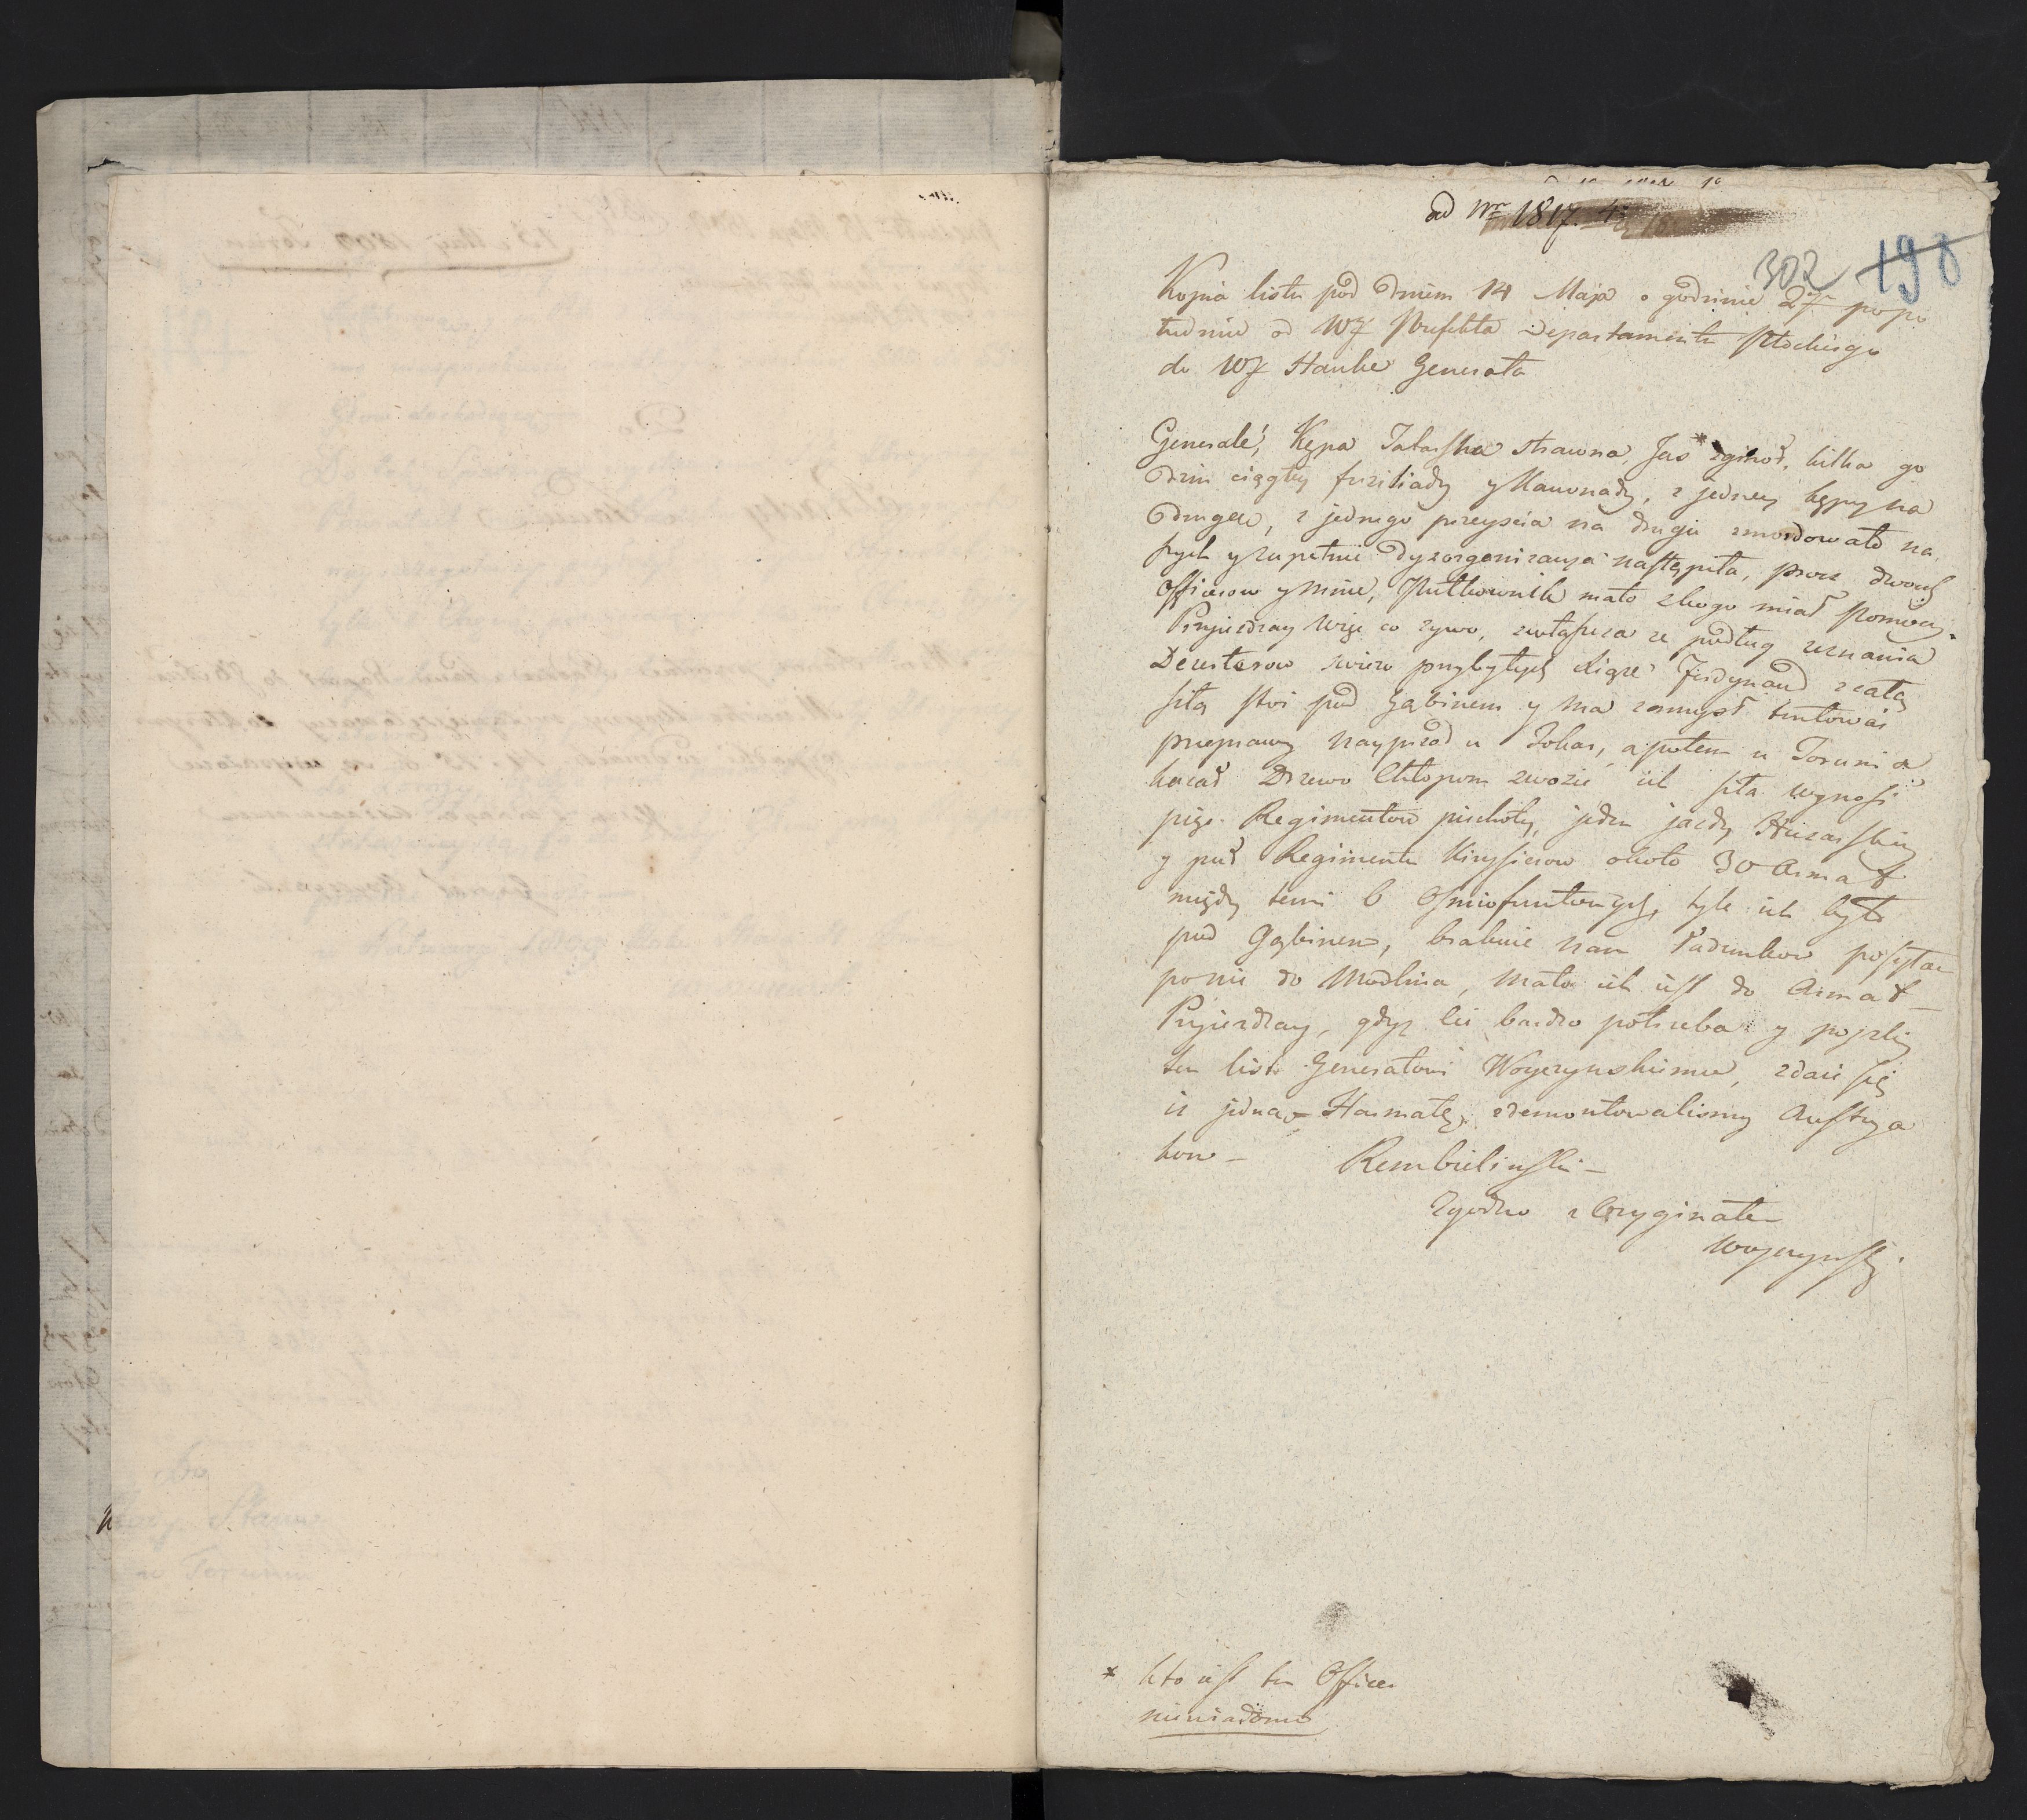 ad Nr 1817.
302 198
Kopia listu pod dniem 14 Maja o godzinie 2giej popo
łudniu od WJ Prefekta Departamentu Płockiego
do WJ Hauke Generała
Generale, Kępa Tatarska strawna, Jas * zginoł, kilka go
dzin ciągłey fuziliady y Kanonady, z jedney kępy na
drugą, z jednego przeyscia na drugie zmordowało na
szych y zupełnie dyzorganizacya nastąpiła, procz dwoch
Officerow y mnie, Pułkownik mało z kogo miał pomocy.
Przyiezdzay więc co zywo, zwłaszcza ze podług zeznania
Dezerterow swiezo przybyłych Xiąze Ferdynand z całą
siłą stoi pod Gąbinem y ma zamysł tentować
przeprawy nayprzod u Tokar, a potem u Torunia
kazał Drzewo Chłopom zwozić ich siła wynosi
pięc Regimentow piechoty, jeden jazdy Huzarskiey
y puł Regimentu Kirysierow około 30 Armat
między temi 6 Osmiofuntowych, tyle ich było
pod Gąbinem, brakuie nam Ładunkow posyłam
po nie do Modlina, mało ich iest do Armat
Przyiezdzay, gdyz Cię bardzo potrzeba y poszliy
ten list Generałowi Woyczynskiemu, zdaie się
iz jedną Harmatę zdemontowalismy Austrya
kow –
Rembielinski –
Zgodno z Oryginałem
Woyczynski.
* kto iest ten Officer
niewiadomo